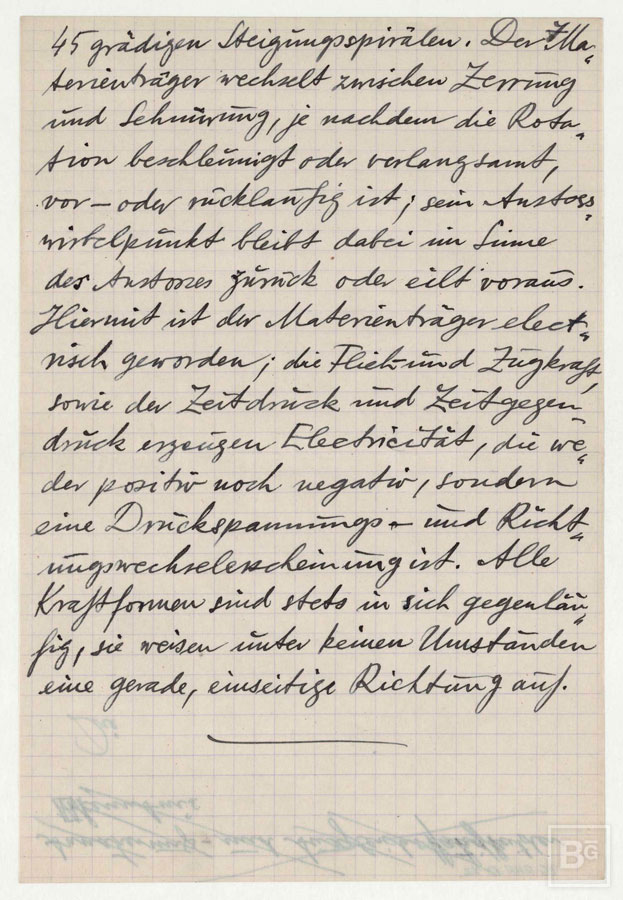 45 grädigen Steigungsspirälen. Der Ma„
terienträger wechselt zwischen Zerrung
und Schnürung, je nachdem die Rota„
tion beschleunigt oder verlangsamt,
vor – oder rückläufig ist; sein Anstoss„
wirbelpunkt bleibt dabei im Sinne
des Anstosses zurück oder eilt voraus.
Hiermit ist der Materienträger elect„
risch geworden; die Flieh- und Zugkraft,
sowie der Zeitdruck und Zeitgegen„
druck erzeugen Electricität, die we„
der positiv noch negativ, sondern
eine Druckspannungs- und Richt„
ungswechselerscheinung ist. Alle
Kraftformen sind stets in sich gegenläu„
fig, sie weisen unter keinen Umständen
eine gerade, einseitige Richtung auf.
BG